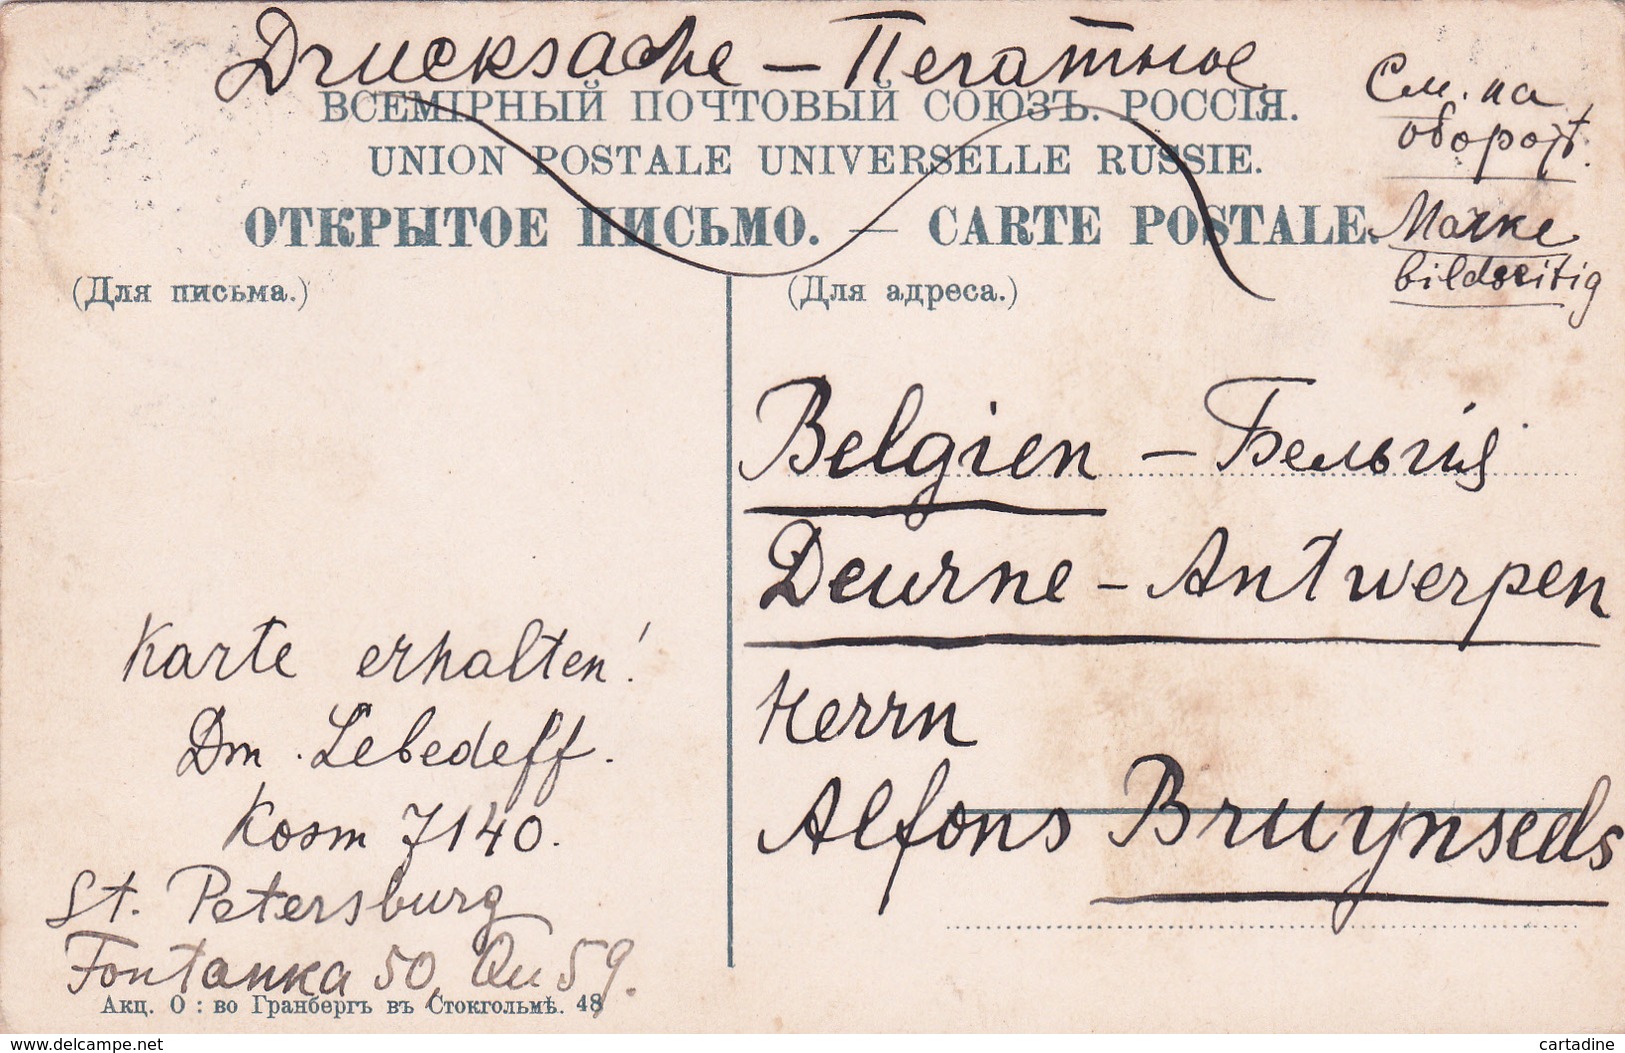 Drucksache – Печатное
См. на
обороте.
Marke
bildseitig
ВСЕМІРНЫЙ ПОЧТОВЫЙ СОЮЗЪ. РОССІЯ.
UNION POSTALE UNIVERSELLE RUSSIE.
ОТКРЫТОЕ ПИСЬМО. — CARTE POSTALE.
(Для письма.)
(Для адреса.)
Karte erhalten!
Dm. Lebedeff.
Kosm 7140.
St. Petersburg
Fontanka 50, Qu 59.
Акц. О : во Гранбергъ въ Стокгольмѣ. 48
Belgien – Бельгія
Deurne – Antwerpen
Herrn
Alfons Bruynseds
www.delcampe.net
cartadine